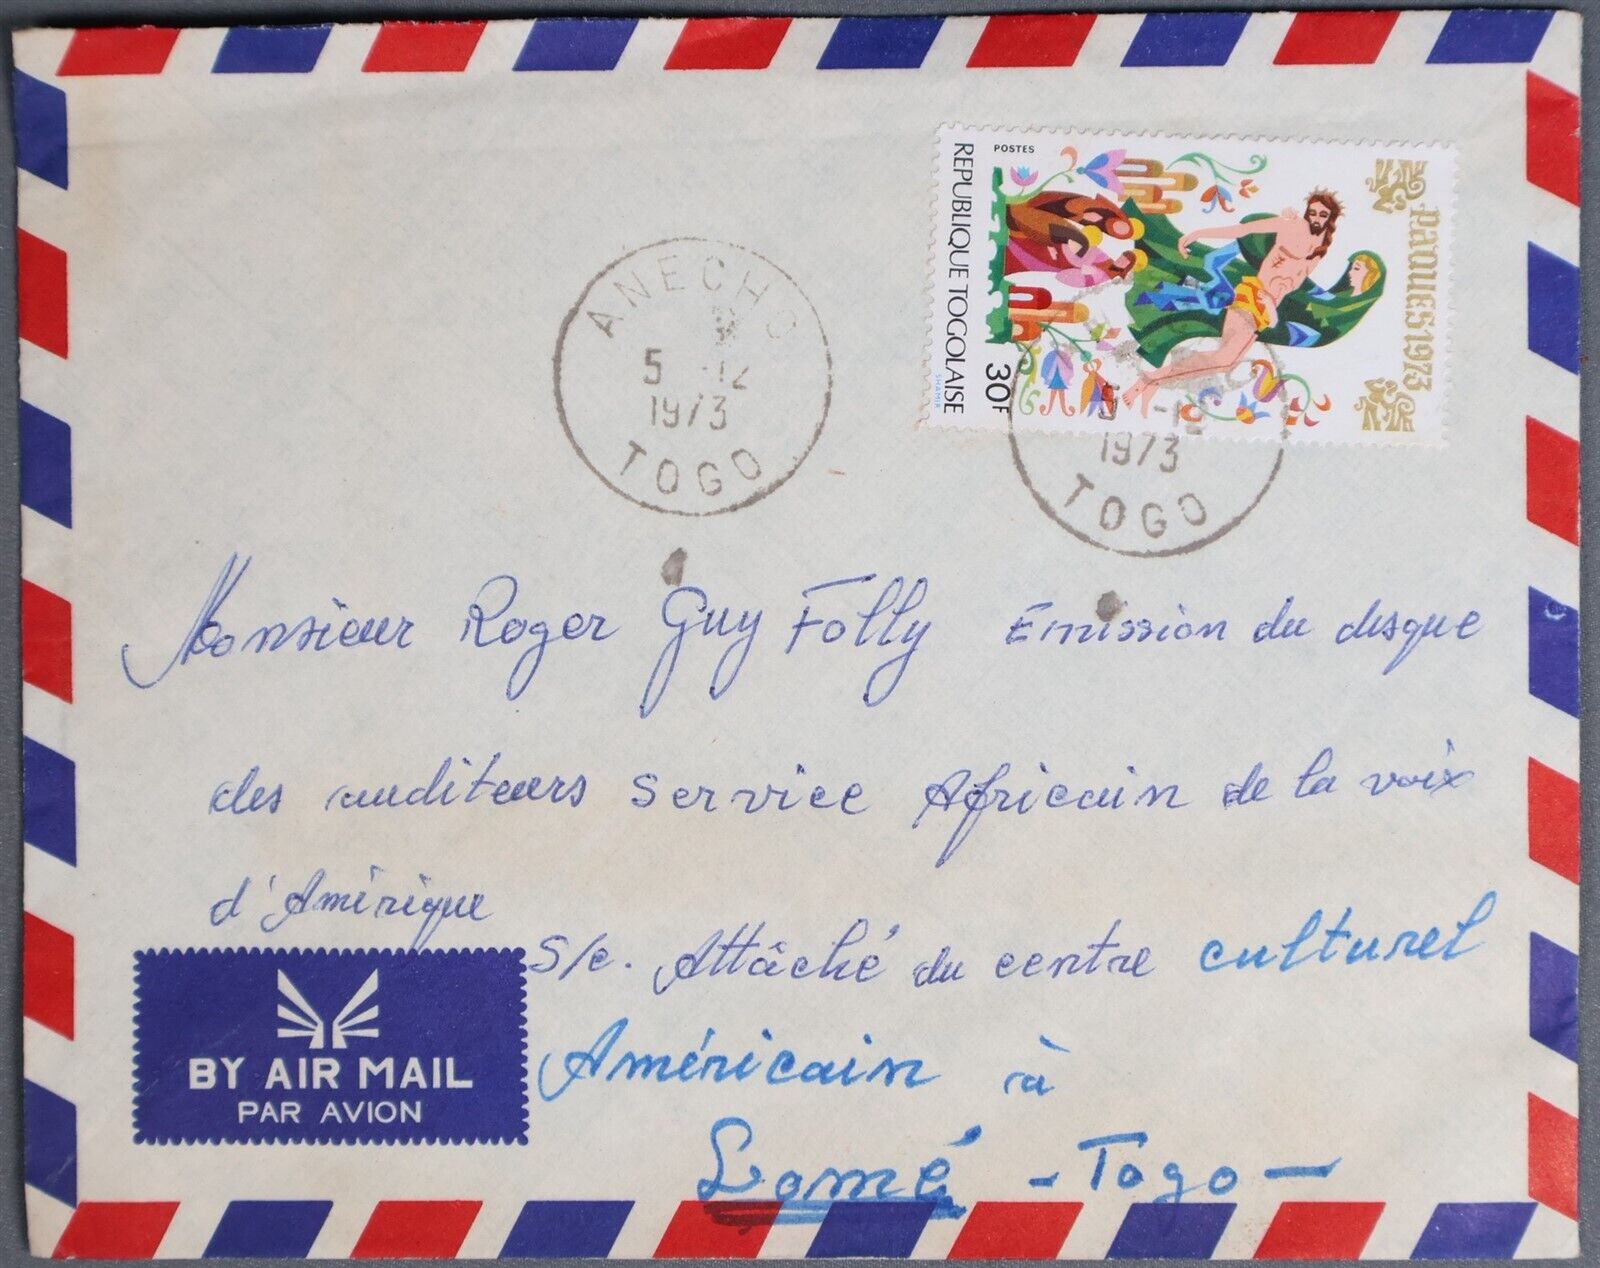 POSTES
REPUBLIQUE TOGOLAISE
30F
SHAMIR
PAQUES 1973
ANECHO
5 -12
1973
TOGO
1973
TOGO
Monsieur Roger Guy Folly Emission du disque
des auditeurs Service Africain de la voix
d'Amérique
S/c. Attâché du centre culturel
Américain à
Lomé - Togo -
BY AIR MAIL
PAR AVION